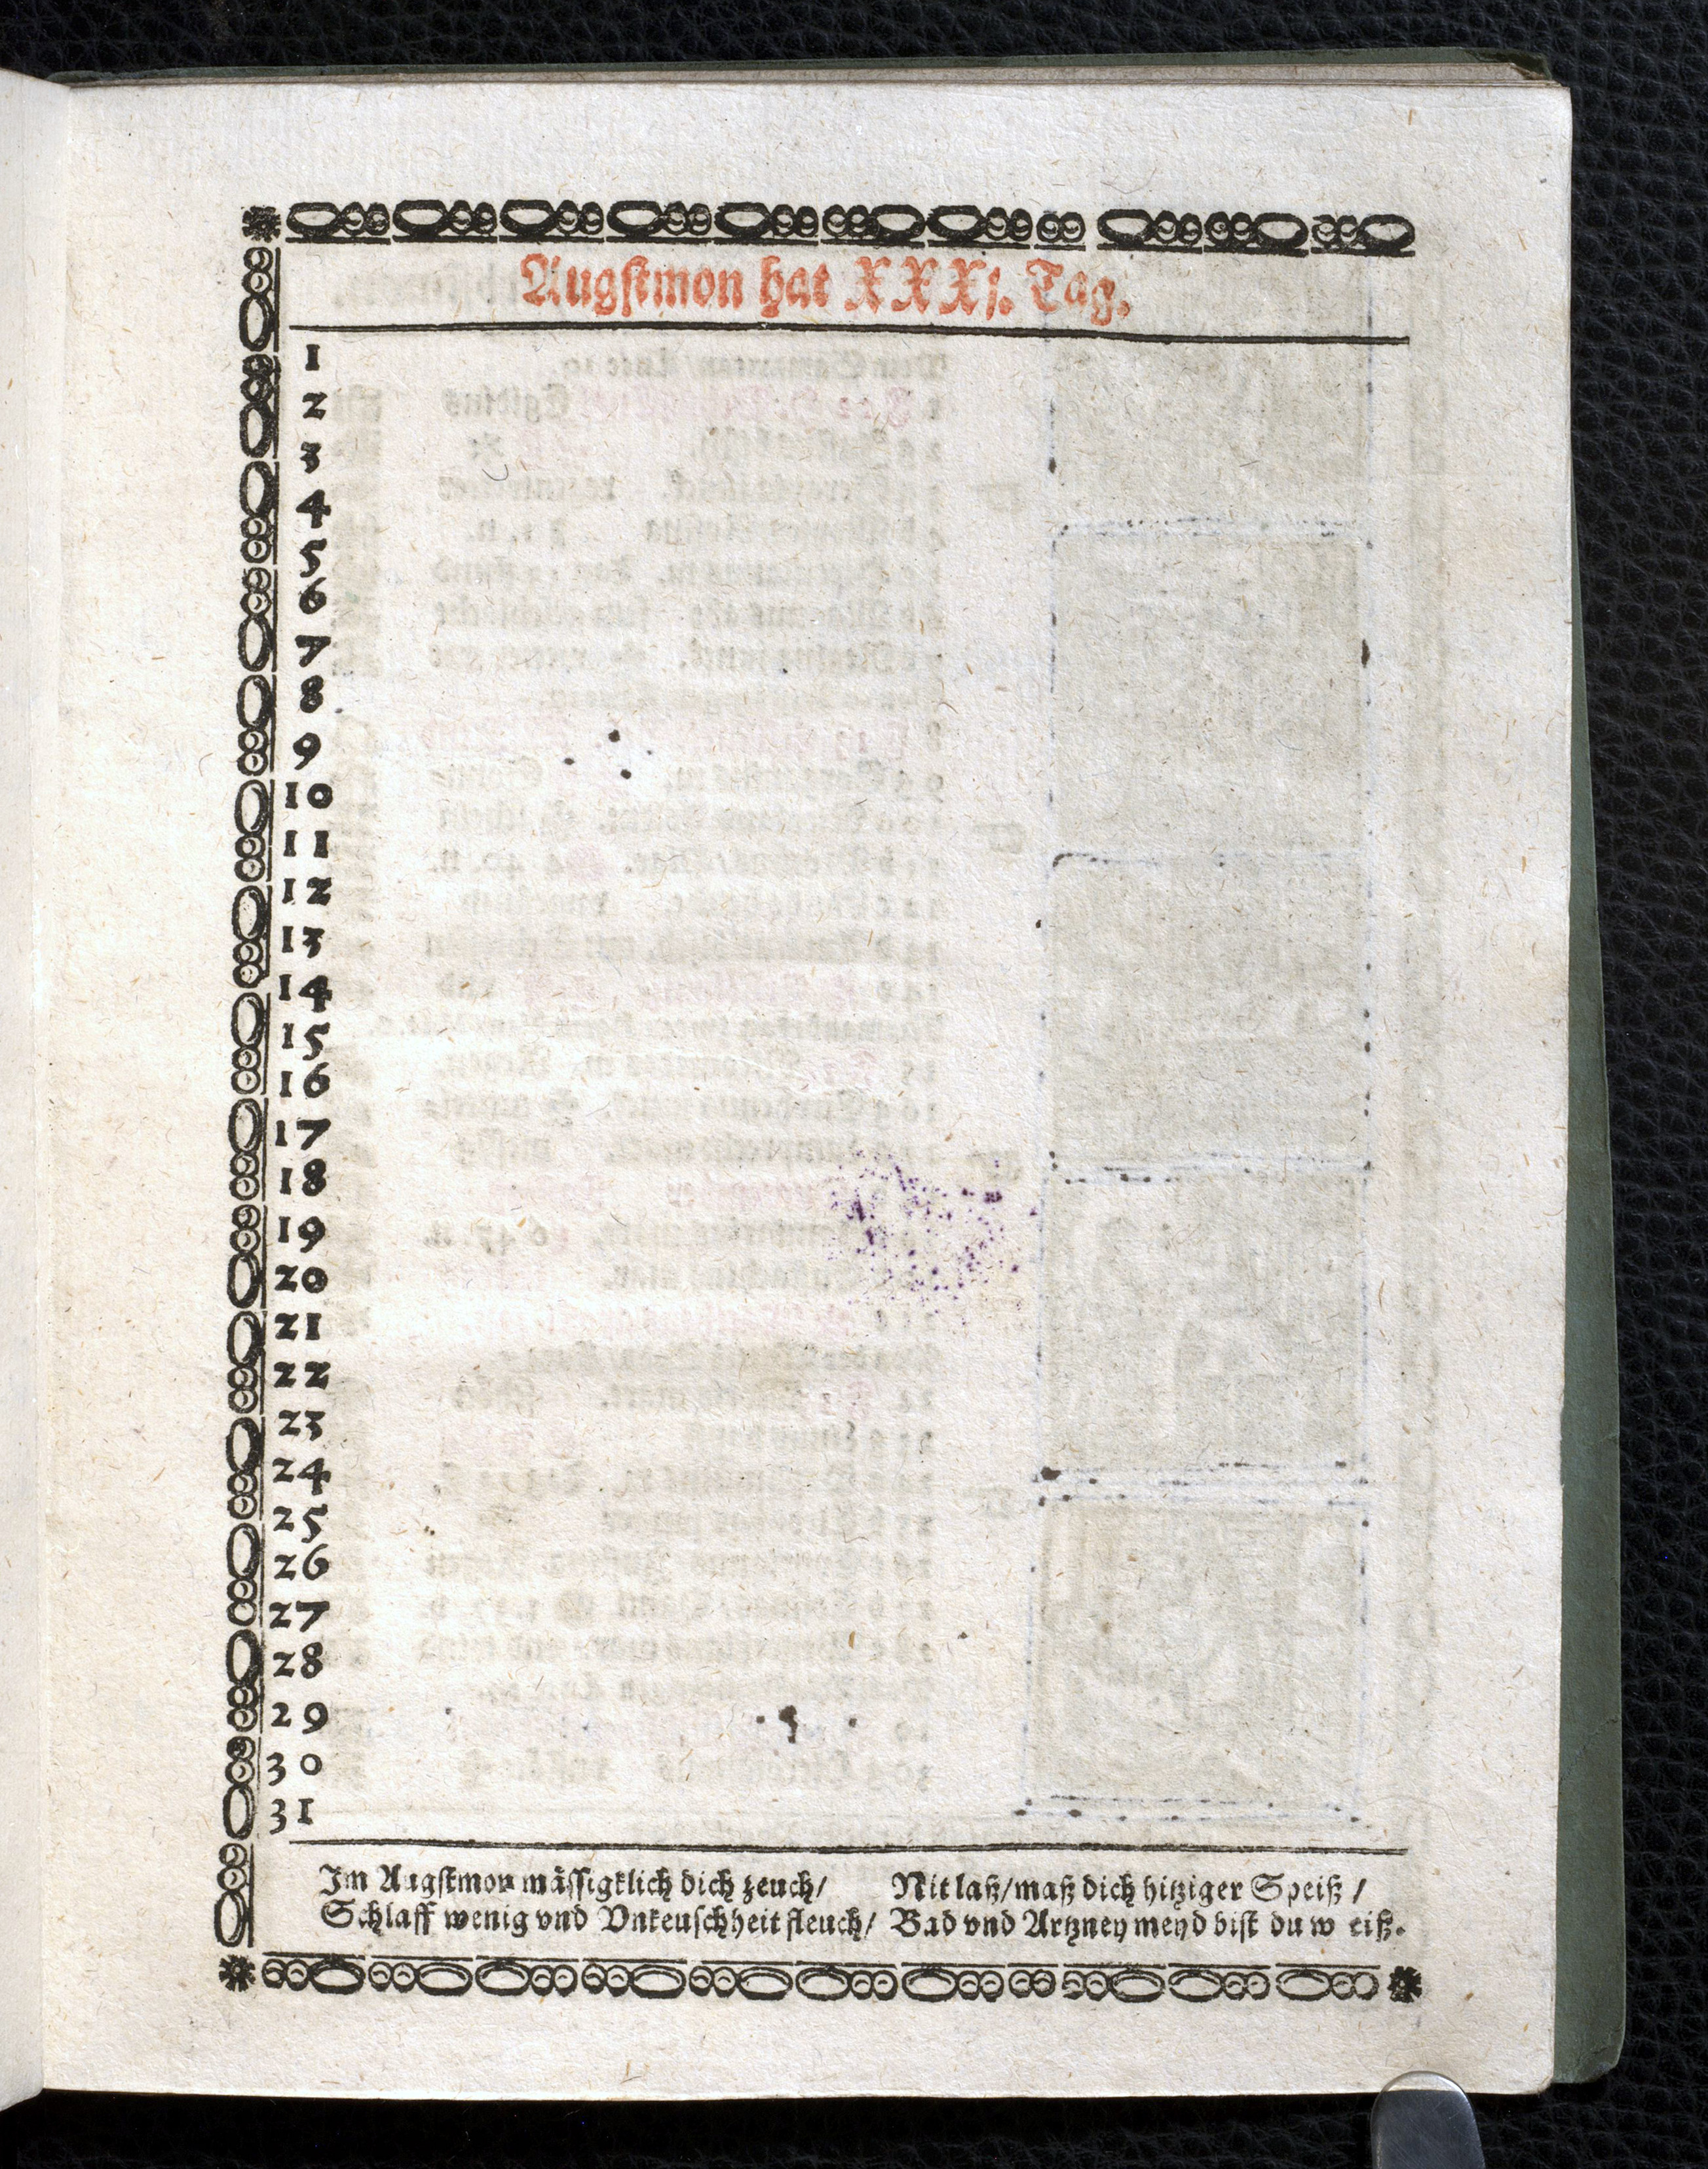 Augſtmon hat XXXj. Tag.
1
2
3
4
5
6
7
8
9
10
11
12
13
14
15
16
17
18
19
20
21
22
23
24
25
26
27
28
29
30
31
Im Augſtmon mäſſigklich dich zeuch/
Schlaff wenig vnd Vnkeuſchheit fleuch/
Nit laß/maß dich hitziger Speiß /
Bad vnd Artzney meyd biſt du w eiß.